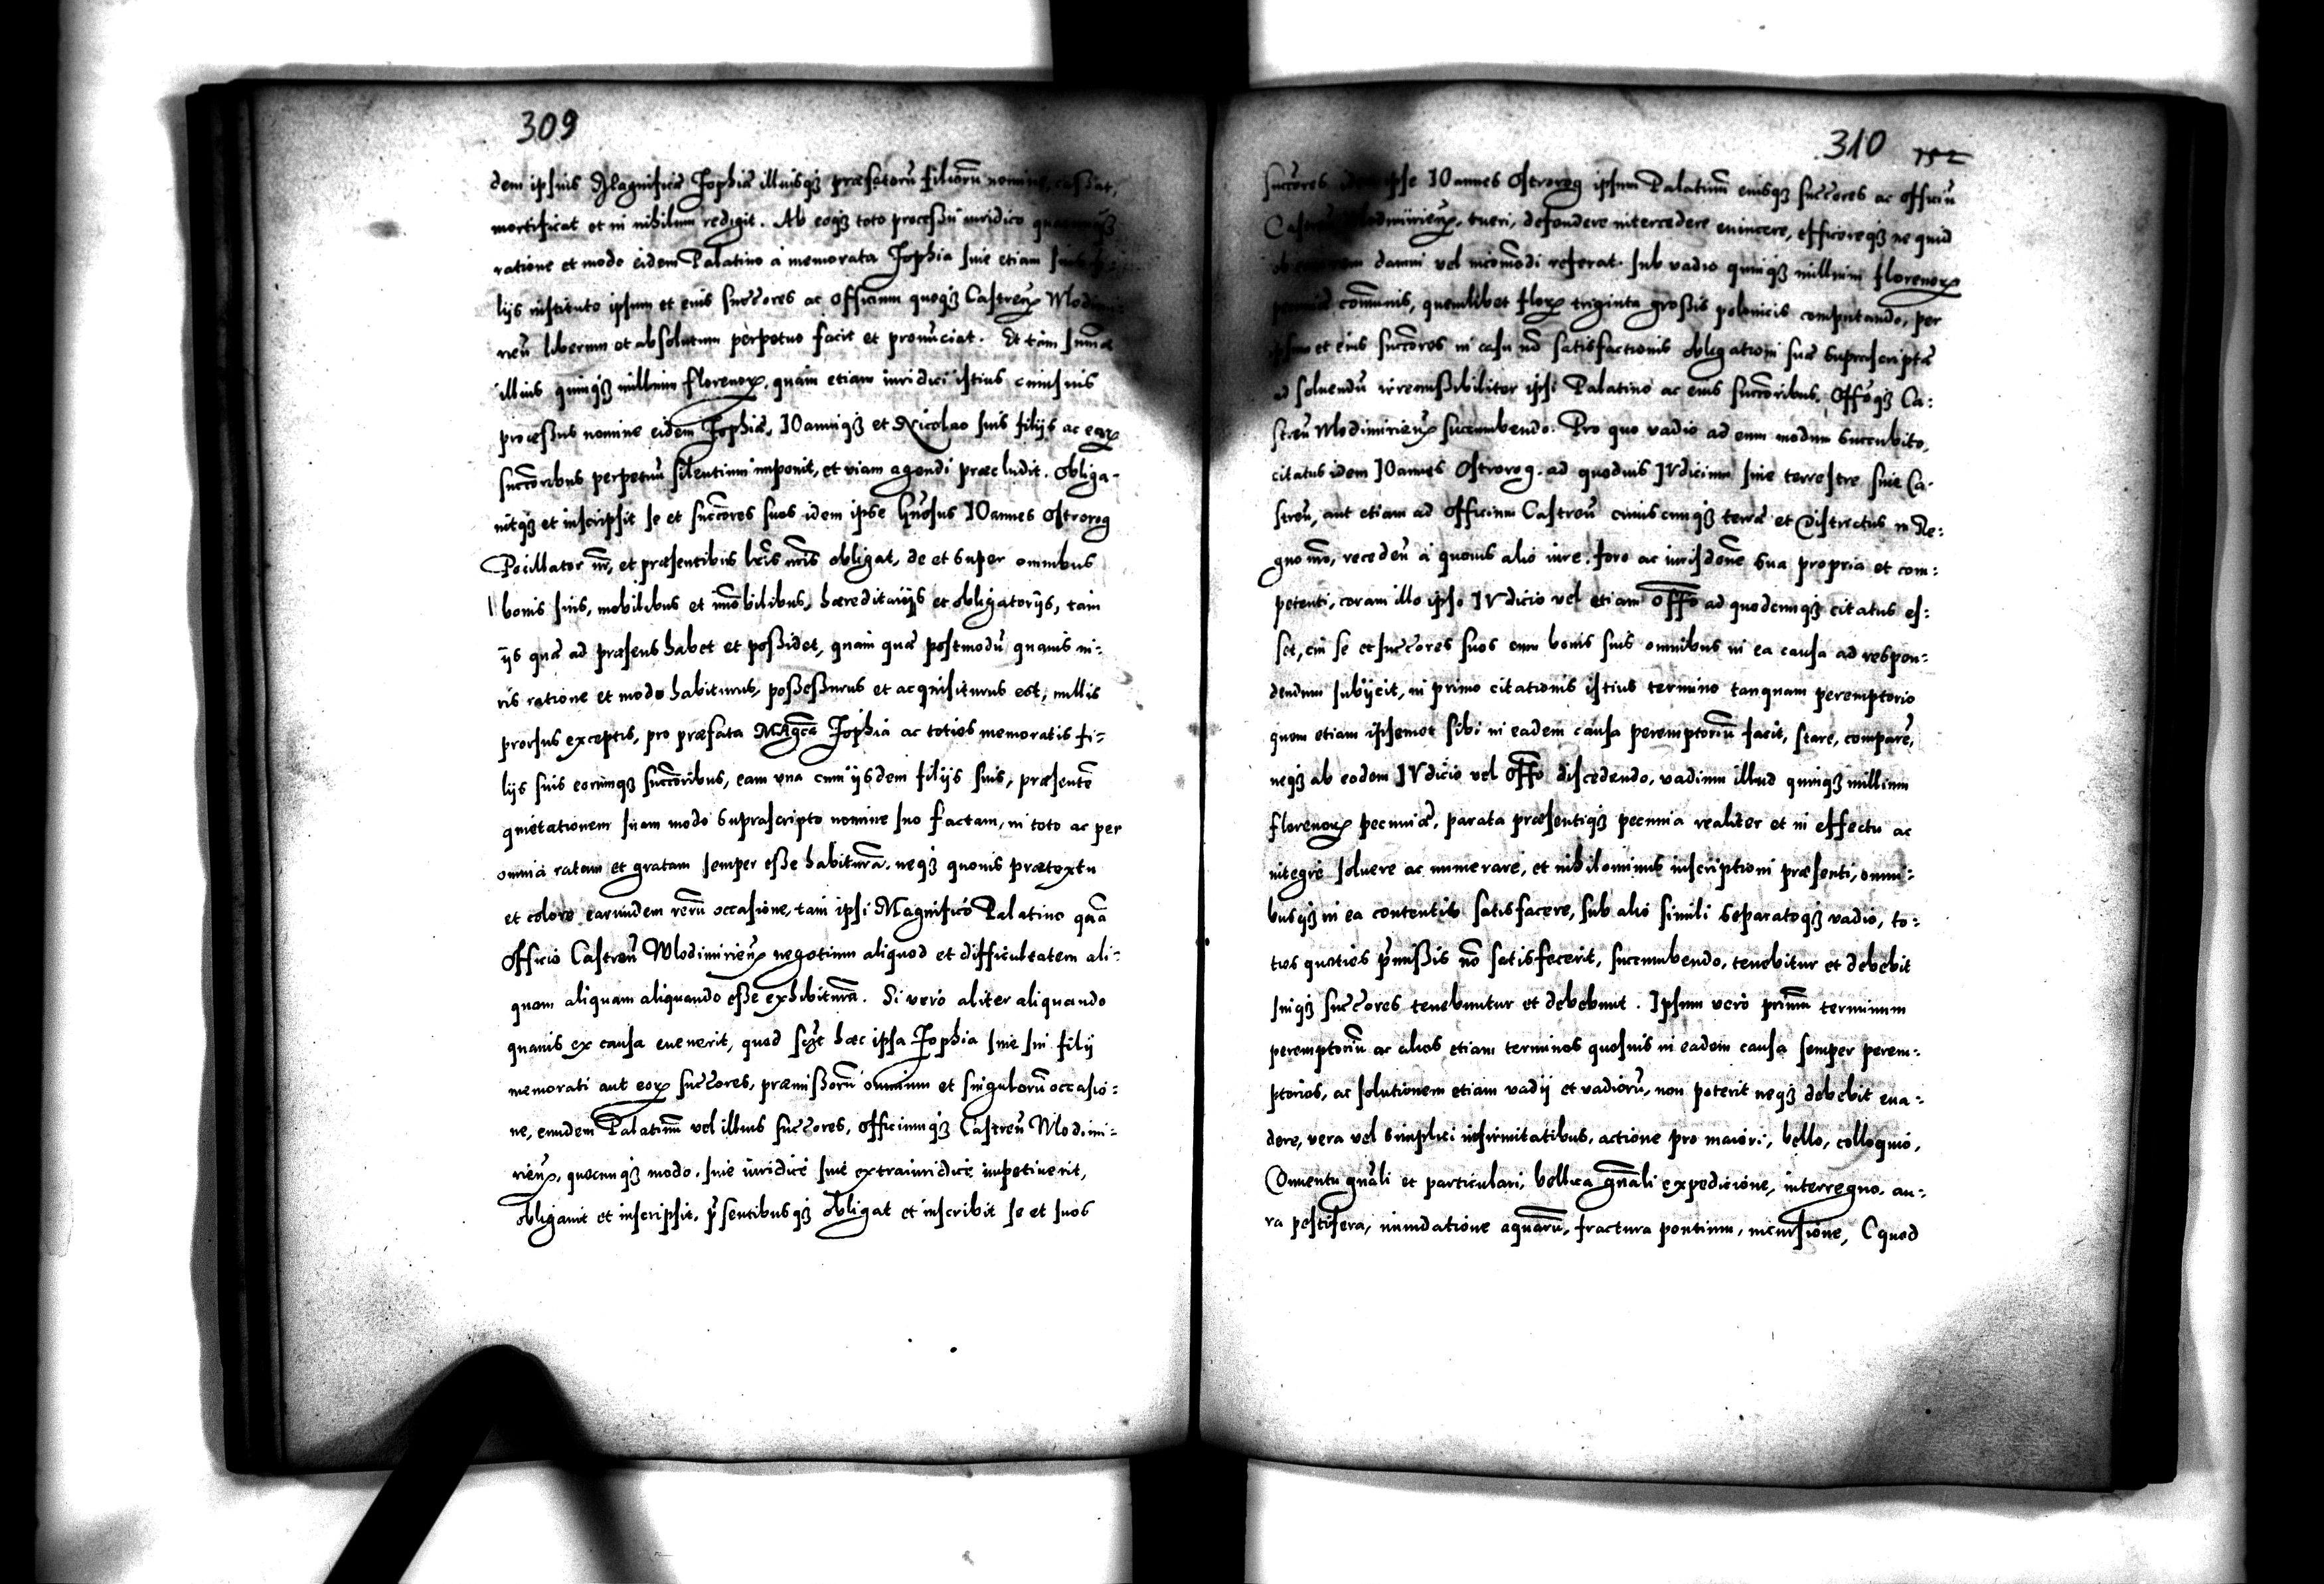 309
dem ipsius Magnificæ Zophiæ illiusq3 præfatorū filiorū nomine, cassat,
mortificat et in nihilum redigit. Ab eoq3 toto processu iuridico
ratione et modo eidem Palatino à memorata Zophia siue etiam suis
lijs instituto ipsum et eius succores ac officium quoq3 Castreñ Wlodimi:
rieñ liberum et absolutum perpetuo facit et pronūciat. Et tam summæ
illius quinq3 millium florenoꝝ, quàm etiam iuridici istius cuiusuis
processus nomine eidem Zophiæ, IOanniq3 et Nicolao suis filijs ac eoꝝ
succoribus perpetuū silentium imponit, et viam agendi præcludit. Obliga-
uitq3 et inscripsit se et succores suos idem ipse Gñosus IOannes Ostrorog
Pocillator nr̄, et præsentibus lr̄is nr̄is obligat, de et super omnibus
bonis suis, mobilibus et im̄obilibus, hæreditarijs et obligatorijs, tam
ijs quæ ad præsens habet et possidet, quàm quæ postmodū quauis iu:
ris ratione et modo habiturus, possessurus et acquisiturus est, nullis
prorsus exceptis, pro præfata Mag̃ca Zophia ac toties memoratis fi:
lijs suis eorumq3 succoribus, eam vna cum ijsdem filijs suis, præsentē
quietationem suam modo suprascripto nomine suo factam, in toto ac per
omnia ratam et gratam semper esse habiturā. neq3 quouis prætextu
et colore earundem rerū occasione, tam ipsi Magnifico Palatino quā
officio Castreñ Wlodimirieñ negotium aliquod et difficultatem ali:
quam aliquam aliquando esse exhibiturā. Si verò aliter aliquando
quauis ex causa euenerit, quod scꝫt hæc ipsa Zophia siue sui filij
memorati aut eoꝝ succores, præmissorū omnium et singulorū occasio:
ne, eundem Palatinū vel illius succores, officiumq3 Castreñ Wlodimi:
rieñ, quocunq3 modo, siue iuridicè siue extraiuridicè impetiuerit,
obligauit et inscripsit, p̄sentibusq3 obligat et inscribit se et suos
310 152
succores idem ipse IOannes Ostrorog ipsum Palatinū eiusq3 succores ac officiū
Castreñ Wlodimirieñ, tueri, defendere intercedere euincere, efficereq3 ne quid
damni vel incōmodi referat. sub vadio quinq3 millium florenoꝝ
pecuniæ cōmunis, quemlibet floꝝ triginta grossis polonicis computando, per
ipsum et eius succores in casu nō satisfactionis obligationi suæ suprascriptæ
ad soluendū irremissibiliter ipsi Palatino ac eius succoribus, Off̄oq3 Ca:
streñ Wlodimirieñ succumbendo. Pro quo vadio ad eum modum succubito,
citatus idem IOannes Ostrorog. ad quoduis IVdicium siue terrestre siue Ca-
streñ, aut etiam ad officium Castreñ cuiuscunq3 terræ et Districtus in Re:
gno nr̄o, recedeñ à quouis alio iure, foro ac iurisdōne sua propria et com:
petenti, coram illo ipso IVdicio vel etiam off̄o ad quodcunq3 citatus es:
set, cui se et succores suos cum bonis suis omnibus in ea causa ad respon:
dendum subijcit, in primo citationis istius termino tanquam peremptorio
quem etiam ipsemet sibi in eadem causa peremptoriū facit, stare, comparē,
neq3 ab eodem IVdicio vel off̄o discedendo, vadium illud quinq3 millium
florenoꝝ pecuniæ, parata præsentiq3 pecunia realiter et in effectu ac
integrè soluere ac numerare, et nihilominus inscriptioni præsenti, omni:
busq3 in ea contentis satisfacere, sub alio simili separatoq3 vadio, to:
ties quoties p̄missis nō satisfecerit, succumbendo, tenebitur et debebit
suiq3 succores tenebuntur et debebunt. Ipsum verò primū terminum
peremptoriū ac alios etiam terminos quosuis in eadem causa semper perem:
ptorios, ac solutionem etiam vadij et vadiorū, non poterit neq3 debebit eua:
dere, vera vel simplici infirmitatibus, actione pro maiori, bello, colloquio,
Conuentu gñali et particulari, bellica gñali expedicione, interregno. au:
ra pestifera, inundatione aquarū, fractura pontium, incursione, (quod